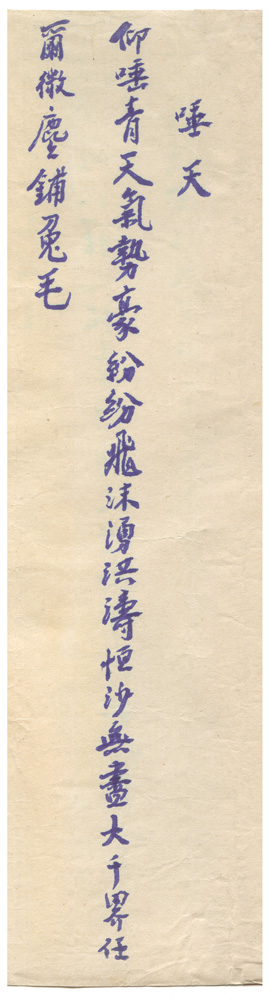 唾天
仰唾青天氣勢豪紛紛飛沫湧洪濤恒沙無盡大千界任
爾微塵鋪兔毛